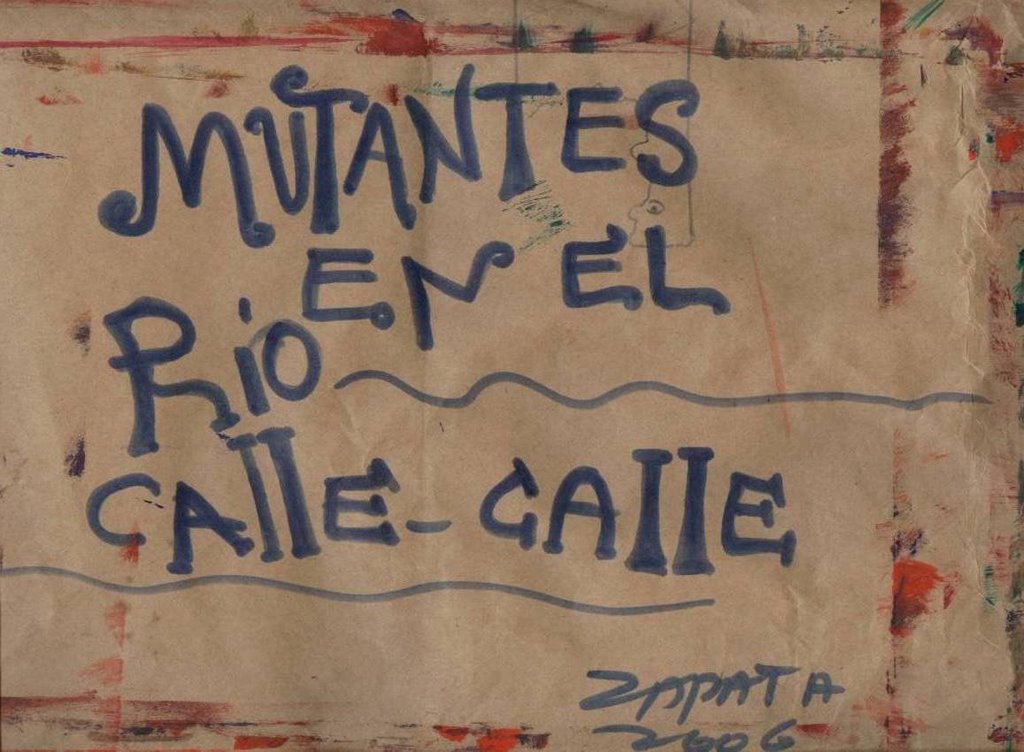 MUTANTES
EN EL
Río
CAllE-CAllE
ZAPATA
2006